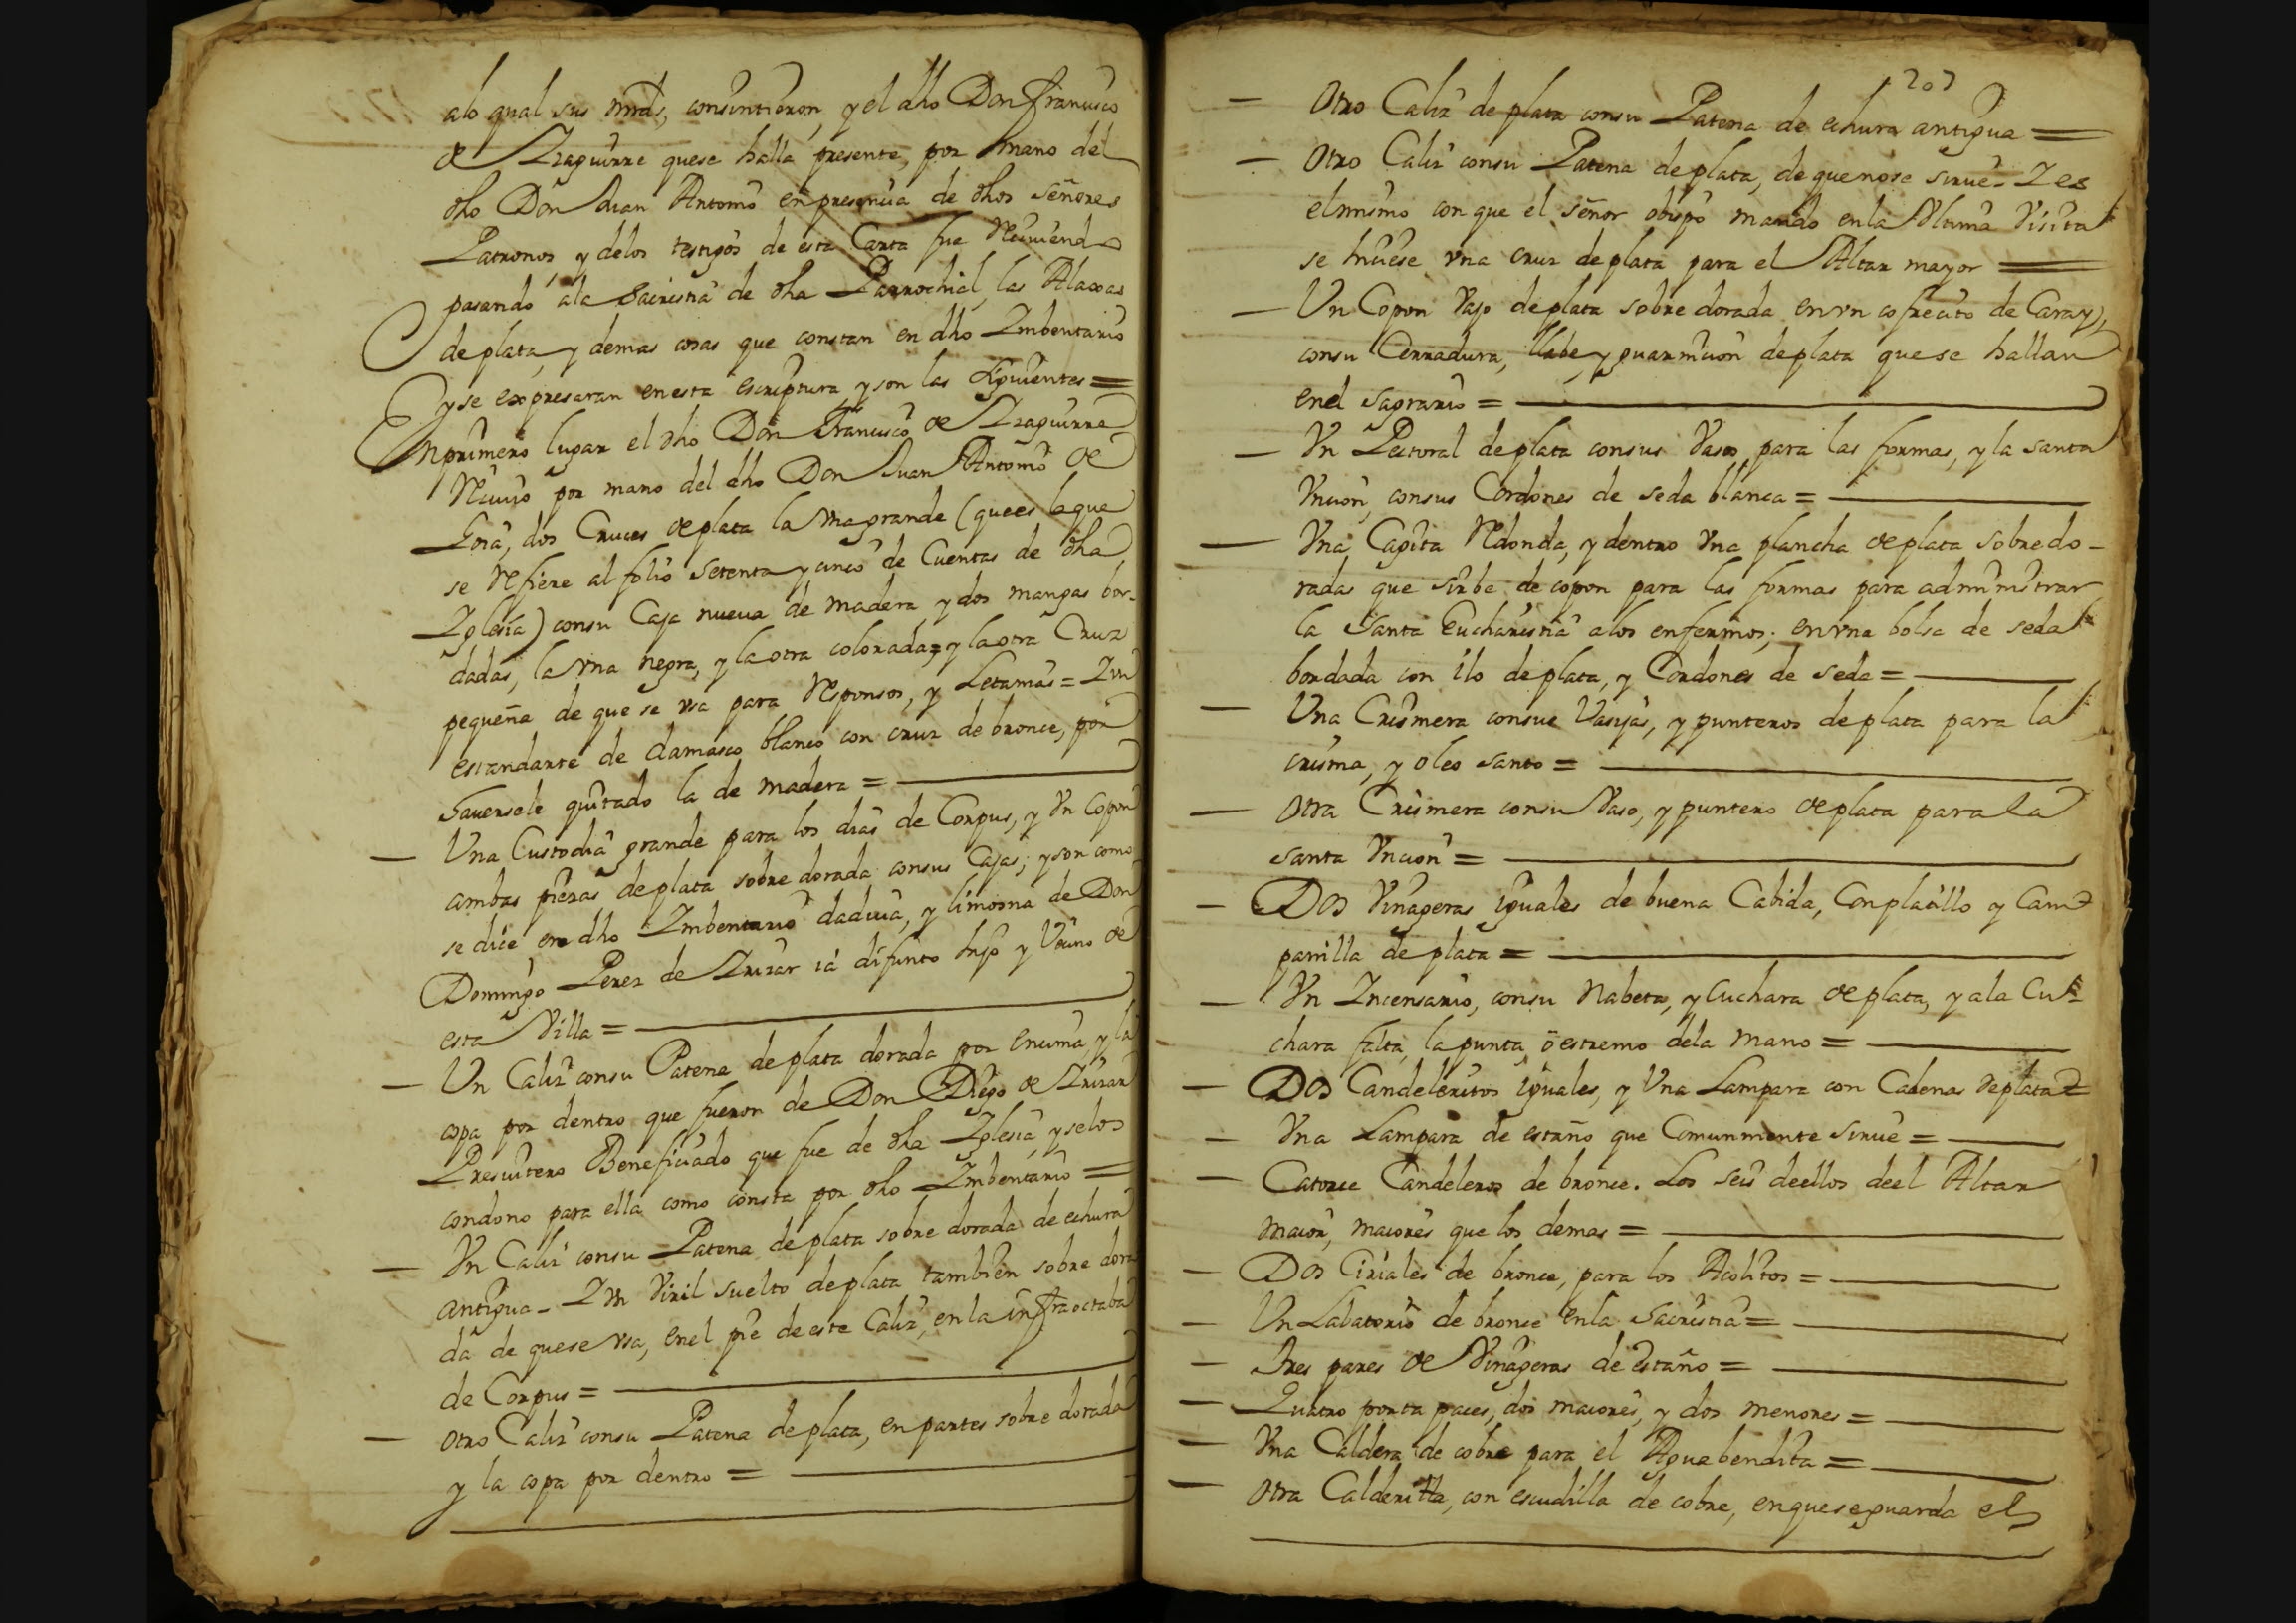 alo qual sus mrds, consintieron, y el dho Don Francisco
de Yraguirre quese halla presente, por mano del
dho Don Juan Antonio en presencia de dhos señores
Patronos, y delos testigos de esta Carta fue Reciuiendo
pasando ala Sacristia de dha Parrochial, las Alaxas
de plata, y demas cosas que constan en dho Imbentario
y se expresaran en esta escriptura, y son las siguientes =
En primero lugar el dho Don Francisco de Yraguirre
Reciuio por mano del dho Don Juan Antonio de
dos Cruces de plata la vna grande (que es laque
se Refiere al folio setenta y cinco de Cuentas de dha
Yglesia) consu Caja nueua de madera y dos mangas bor-
dadas, la vna negra, y la otra colorada; y la otra Cruz
pequeña de que se vsa para Responsos, y Letanias = Y vn
estandarte de damasco blanco con cruz de bronce, por
hauersele quitado la de madera =
Una Custodia grande para los dias de Corpus, y Vn Copon
ambas piezas de plata sobre dorada consus Cajas; y son como
se dice en dho Imbentario dadiua, y limosna de Don
Domingo Perez de Yrizar ia difunto hijo y Vecino de
esta Villa =
Un Caliz consu Patena de plata dorada por encima, y la
copa por dentro que fueron de Don Diego de Yrizar
Presuitero Beneficiado que fue de dha Yglesia, y selos
condono para ella como consta por dho Imbentario =
Vn Caliz consu Patena de plata sobre dorada de echura
antigua - Y vn Viril suelto de plata tambien sobre dora
da de quese vsa, enel pie de este Caliz, en la infraoctaba
de Corpus =
Otro Caliz consu Patena de plata, en partes sobre dorada
y la copa por dentro =
207
Otro Caliz de plata consu Patena de echura antigua =
Otro Caliz consu Patena de plata, de quenose sirue - Y es
elmismo con que el señor obispo mando enla Vltima Visita
se hiciese vna cruz de plata para el Altar mayor =
Un Copon Vajo de plata sobre dorada en vn cofrecito de Caray,
consu Cerradura, llabe, y guarnicion de plata que se hallan
enel Sagrario =
Vn Pectoral de plata consus Vasos para las formas, y la santa
Vncion, consus Cordones de seda blanca =
Vna Cagita Redonda, y dentro Vna plancha de plata sobredo-
radas que sirbe de copon para las formas para administrar
la Santa Eucharistia alos enfermos; en vna bolsa de seda
bordada con ilo de plata, y Cordones de seda =
Una Crismera consus Vasijas, y punteros de plata para la
crisma, y oleo santo =
Otra Crismera consu Vaso, y puntero de plata para la
santa Vncion =
Dos Vinageras iguales de buena Cabida, Con platillo y Cam-
panilla de plata =
Vn Incensario, consu Nabeta, y Cuchara de plata, y ala Cu-
chara falta, la punta, ö estremo dela mano =
Dos Candeleritos iguales, y Una Lampara con Cadenas de plata =
Vna Lampara de estaño que Comunmente sirue =
Catorce Candeleros de bronce. Los seis deellos deel Altar
maior, maiores que los demas =
Dos Ciriales de bronce, para los Acolitos =
Un Labatorio de bronce enla Sacristia =
Tres pares de Vinageras de estaño =
Quatro porta paces, dos maiores, y dos menores =
Vna Caldera de cobre para el Agua bendita =
Otra Calderilla, con escudilla de cobre, en quese guarda el